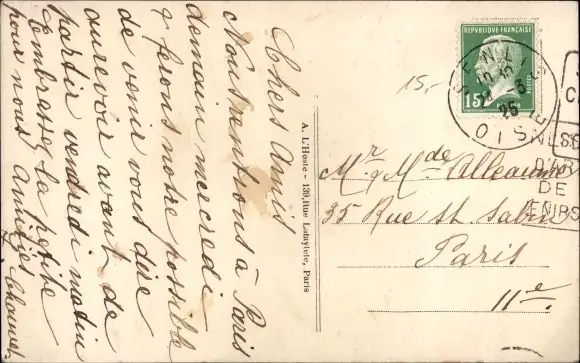 Chers Amis
Nous rentrons à Paris
demain mercredi
& ferons notre possible
de venir vous dire
aurevoir avant de
partir vendredi matin
Embrassez la petite
pour nous Amitiés
A. L'Hoste - 139, Rue Lafayette, Paris
15,-
REPUBLIQUE FRANÇAISE
15c
POSTES
SENLIS
25
OISE
Mr & Mde Alleaume
35 Rue St. Sabin
Paris
11e.
SENLIS
D'AR
DE